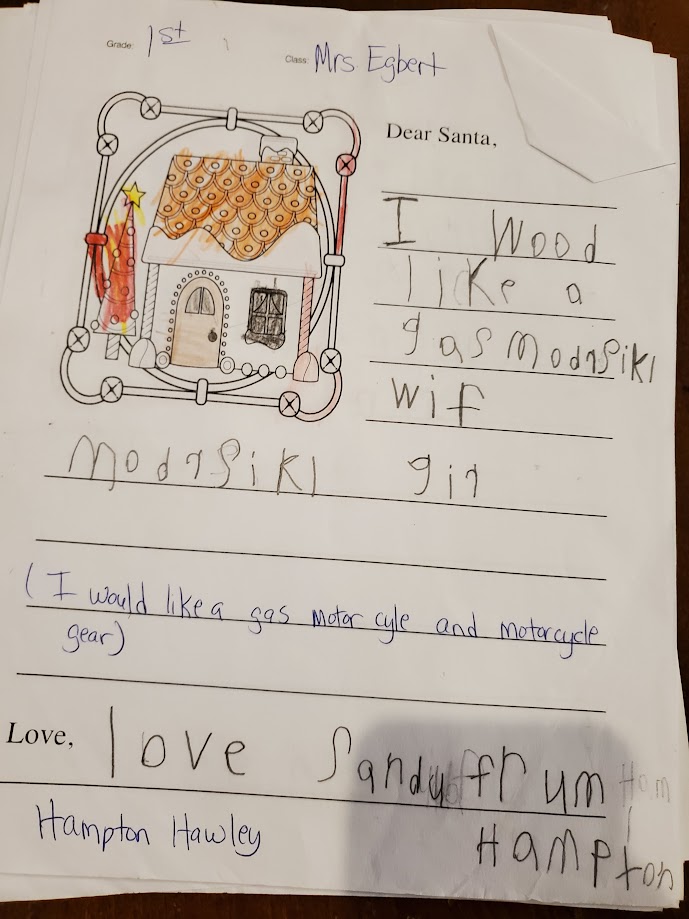 Grade: 1st
Class: Mrs Egbert
Dear Santa,
I Wood
like a
gas modrsikl
wif
modrsikl gir
(I would like a gas motor cyle and motorcycle
gear)
Love, love Sandy frum
Hampton Hawley
Hampton